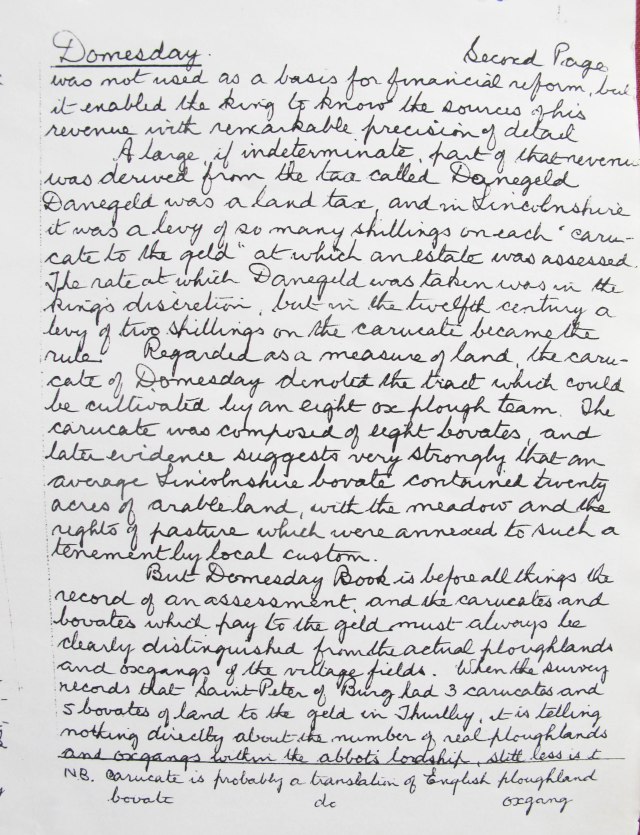 Domesday. Second Page
was not used as a basis for financial reform, but
it enabled the king to know the sources of his
revenue with remarkable precision of detail
A large, if indeterminate, part of that revenue
was derived from the tax called Danegeld
Danegeld was a land tax, and in Lincolnshire
it was a levy of so many shillings on each "caru-
cate to the geld" at which an estate was assessed.
The rate at which Danegeld was taken was in the
king's discretion, but in the twelfth century a
levy of two shillings on the carucate became the
rule. Regarded as a measure of land, the caru-
cate of Domesday denoted the tract which could
be cultivated by an eight ox plough team. The
carucate was composed of eight bovates, and
later evidence suggests very strongly that an
average Lincolnshire bovate contained twenty
acres of arable land, with the meadow and the
rights of pasture which were annexed to such a
tenement by local custom.
But Domesday Book is before all things the
record of an assessment, and the carucates and
bovates which pay to the geld must always be
clearly distinguished from the actual ploughlands
and oxgangs of the village fields. When the survey
records that Saint Peter of Burg had 3 carucates and
5 bovates of land to the geld in Thurlby, it is telling
nothing directly about the number of real ploughlands
and oxgangs within the abbot's lordship, still less is it
NB. carucate is probably a translation of English ploughland
bovate do oxgang